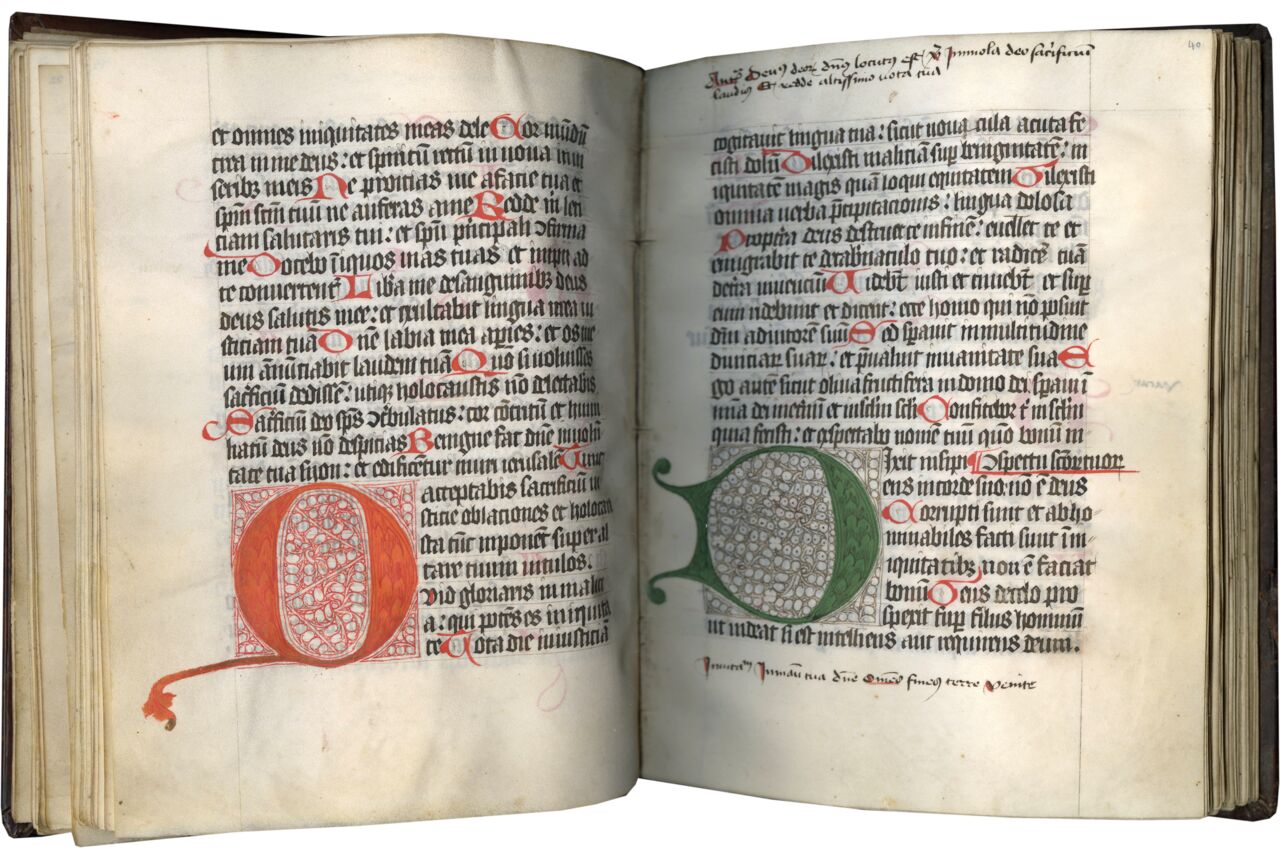 et omnes iniquitates meas dele Cor mūdū
crea in me deus: et spiritū rectū in nova in vi
scerib⁊ meis Ne proicias me a facie tua et
spm̄ scm̄ tuū ne auferas a me Redde m̄ leti
ciam salutaris tui: et spū pͥncipali ↄfirma
me Docebo īiquos vias tuas et impii ad
te convertent᷑ Libͣa me de sanguinib⁊ deus
deus salutis mee: et exultabit lingua mea iu
sticiam tuā Dn̄e labia mea apies: et os me
um ānūciabit laudem tuā Qm̄ si voluisses
sacͥficiū dedissē: utiq⁊ holocaustis nō delectabis
Sacͥficiū deo sps ↄtͥbulatus: cor ↄtͥtum et humi
liatū deus nō despicias Benigne fac dn̄e in bo
tate tua syon: et edificēt᷑ muri ierusalē Tunc
acceptabis sacrificiū iu
sticie oblationes et holocau
sta tūc imponēt super al
tare tuum vitulos:
Qvid gloriaris in malici
a: qui potēs es in iniquita
te Tota die iniusticiā
40
Antͣ Deus deoꝝ dn̄s locutus est Immola deo sacͥficium
laudis Et redde altissimo vota tua
cogitavit lingua tua: sicut novacula acuta fe
cisti dolū Dilexisti maliciā sup benignitatē: in
iquitatē magis quā loqui equitatem Dilexisti
omnia verba pͥcipitacionis: lingua dolosa
Propterea deus destruet te in finē: evellet te et
emigrabit te de tabnaculo tuo: et radicē tuā
de tͥra vivenciū Videbt iusti et timebt et sup
eum ridebunt et dicent: ecce homo qui nō posuit
dm̄ adiutorē suū Sed spavit in multitudine
diviciaꝝ suaꝝ: et pͥvaluit in vanitate sua E
go autē sicut oliva fructifera in domo dei spavi ī
mīa dei in etnū et in sclm̄ scli Confitebor t̄ in sclm̄
quia fecisti: et expectabo nomē tuū quō bonū in
Dixit insipi ↄspectu sctoꝝ tuoꝝ
ens in corde suo: nō ē deus
Corrupti sunt et abho
minabiles facti sunt ī in
iquitatib⁊ non ē faciat
bonū Deus de celo pro
spexit sup filios hominū
ut videat si est intelliens aut requirens deum.
Invitaͬ In manu tua dn̄e Omēs fines terre Venite